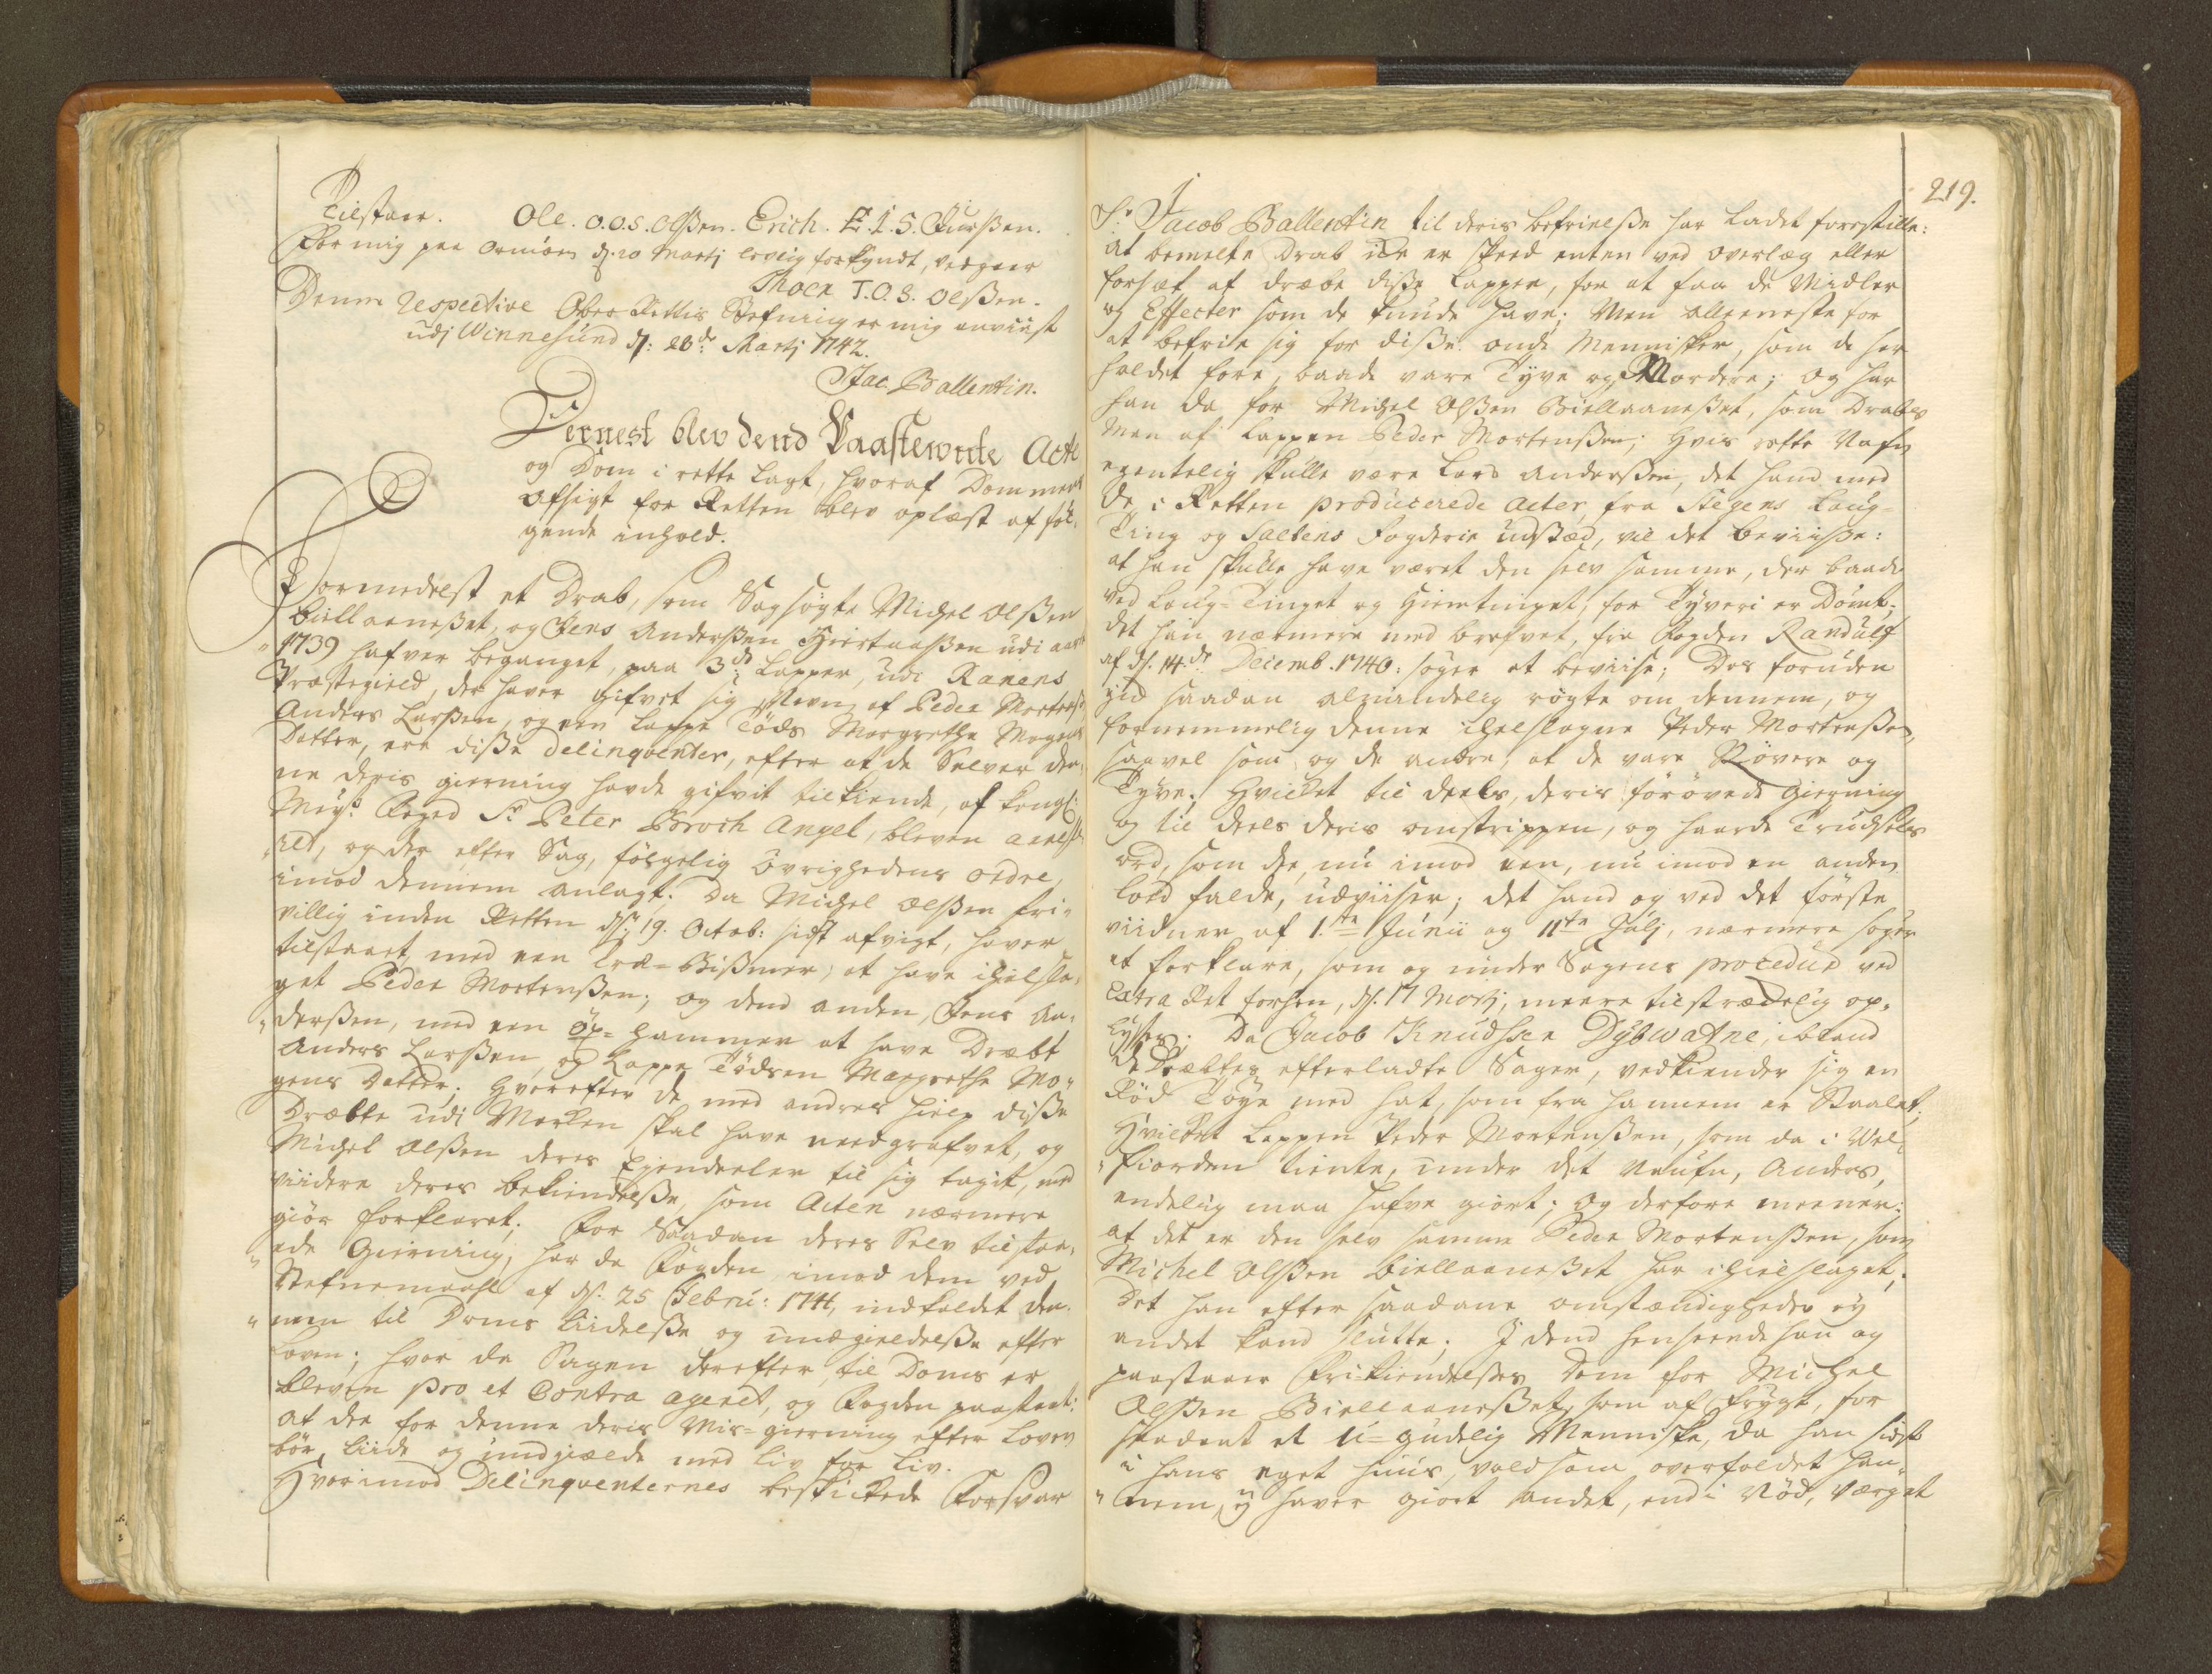 Tilstaar. Ole. O.O.S. Olßen. Erich. E.I.S. Jurßen.
For mig paa Ornöen d. 20 Martj lovlig forkyndt, vedgaar
Thoer T.O.S. Olßen.
Denne respective Ober Rettis Stefning er mig anviist
udj Winnesund d: 28de Martj 1742.
Jac. Ballentin.
Dernest blev dend Paastevnte Acte
og Dom i rette lagt, hvoraf Dommens
Afsigt for Retten blev oplæst af föl-
gende inhold.
Formedelst et Drab, som Sagsögte Michel Olßen
Biellaaneßet, og Jens Anderßen Hiertaaßen udi aaret
1739 hafver beganget, paa 3de Lapper, udi Ranens
Præstegield, der haver gifvet sig Navn af Peder Mortenß:
Anders Larßen, og een Lappe Töds Margrethe Mogens
Datter, ere diße Delinqventer, efter at de Selver den-
ne deris gierning havde gifvit tilkiende, af Kongl:
Mayts: Foged Sr. Peter Broch Angel, bleven arrest-
ret, og der efter Sag, fölgelig Övrighedens ordre,
imod dennem anlagt. Da Michel Olßen fri-
villig inden Retten d: 19. Octob: sidst afvigt, haver
tilstaaet, med een Træ-Bißmer, at have ihielsla-
get Peder Mortenßen; og dend anden, Jens An-
derßen, med een Öx-hammer at have Dræbt
Anders Larßen, og Lappe Tödsen Margrethe Mo-
gens Datter; hvorefter de med andres hielp diße
Dræbte udi Marken skal have needgrafvet, og
Michel Olßen deres Ejendeeler til sig tagit, med
viidere deres bekiendelße, som Acten nærmere
giör forklaret; For Saadan deres Selv tilstaa-
ede Gierning, har da Fogden imod dem ved
Stefnemaahl af d: 25 Febru: 1741, indkaldet den-
nem til Doms Liidelße og undgieldelße efter
Loven; hvor da Sagen derefter til Doms er
bleven pro et Contra ageret, og Fogden paastaat:
at dee for denne deris Mis-gierning efter Loven
bör liide og undgielde med Liv for Liv.
Hvorimod Delinqventernes beskickede Forsvar
219.
Sr. Jacob Ballentin til deris befrielße har ladet forestille:
At bemelte Drab icke er skeed enten ved overlæg eller
forsæt at dræbe diße Lapper, for at faae de Midler
og Effecter som de kunde have; Men alleeneste for
at befrie sig for diße onde Mennisker, som de har
holdet fore, baade vare Tyve og Mordere; Og har
han da for Michel Olßen Biellaaneßet, som Drabs
Man af Lappen Peder Mortenßen; hvis rette Nafn
egentelig skulle være Lars Anderßen, det hand med
de i Retten producerede Acter, fra Stegens Laug-
Ting og Saltens Fogderie udstæd, vil det beviiße:
at han skulle have været den selv samme, der baade
ved Laug-Tinget og Hiemtinget, for Tyveri er Dömt;
det han nærmere med brefvet, fra Fogden Randulf
af d. 14de Decemb. 1740: söger at beviise; Des foruden
gik saadan almindelig rögte om dennem, og
fornemmelig denne ihielslagne Peder Mortenßen,
saavel som og de andre, at de vare Rövere og
Tyve; Hvilket til deels, deris forövede gierning
og til deels deris omstrippen, og haarde Trudsels
ord, som dee, nu imod een, nu imod en anden
lod falde, udviiser; det hand og ved det förste
viidner af 1te Junii og 11te Julj, nærmere söger
at forklare, som og under Sagens procedur ved
extra Ret forhen, d. 17 Martj, meere tilstrækelig op-
lyses; Da Jacob Knudsen Dybwatne, iblant
de Dræbtes efterladte Sager, vedkiender sig en
Röd Töye med hat, som fra hannem er Staalet;
Hvilket Lappen Peder Mortenßen, som da i Vel-
fiorden tiente, under det Naufn, Anders,
endelig maa hafve giort; Og derfore meener:
at det er den selv samme Peder Mortenßen, som
Michel Olßen Biellaaneßet har ihielslaget;
Det han efter saadane omstændigheder ey
andet kand slutte. I dend henseende han og
paastaar Fri-kiendelses Dom for Michel
Olßen Biellaaneßet, som af frygt, for
et u-gudelig Menniske, da han sidst
i hans eget huus, voldsom overfaldet han-
nem, ey haver giort andet, end i Nöd, værget